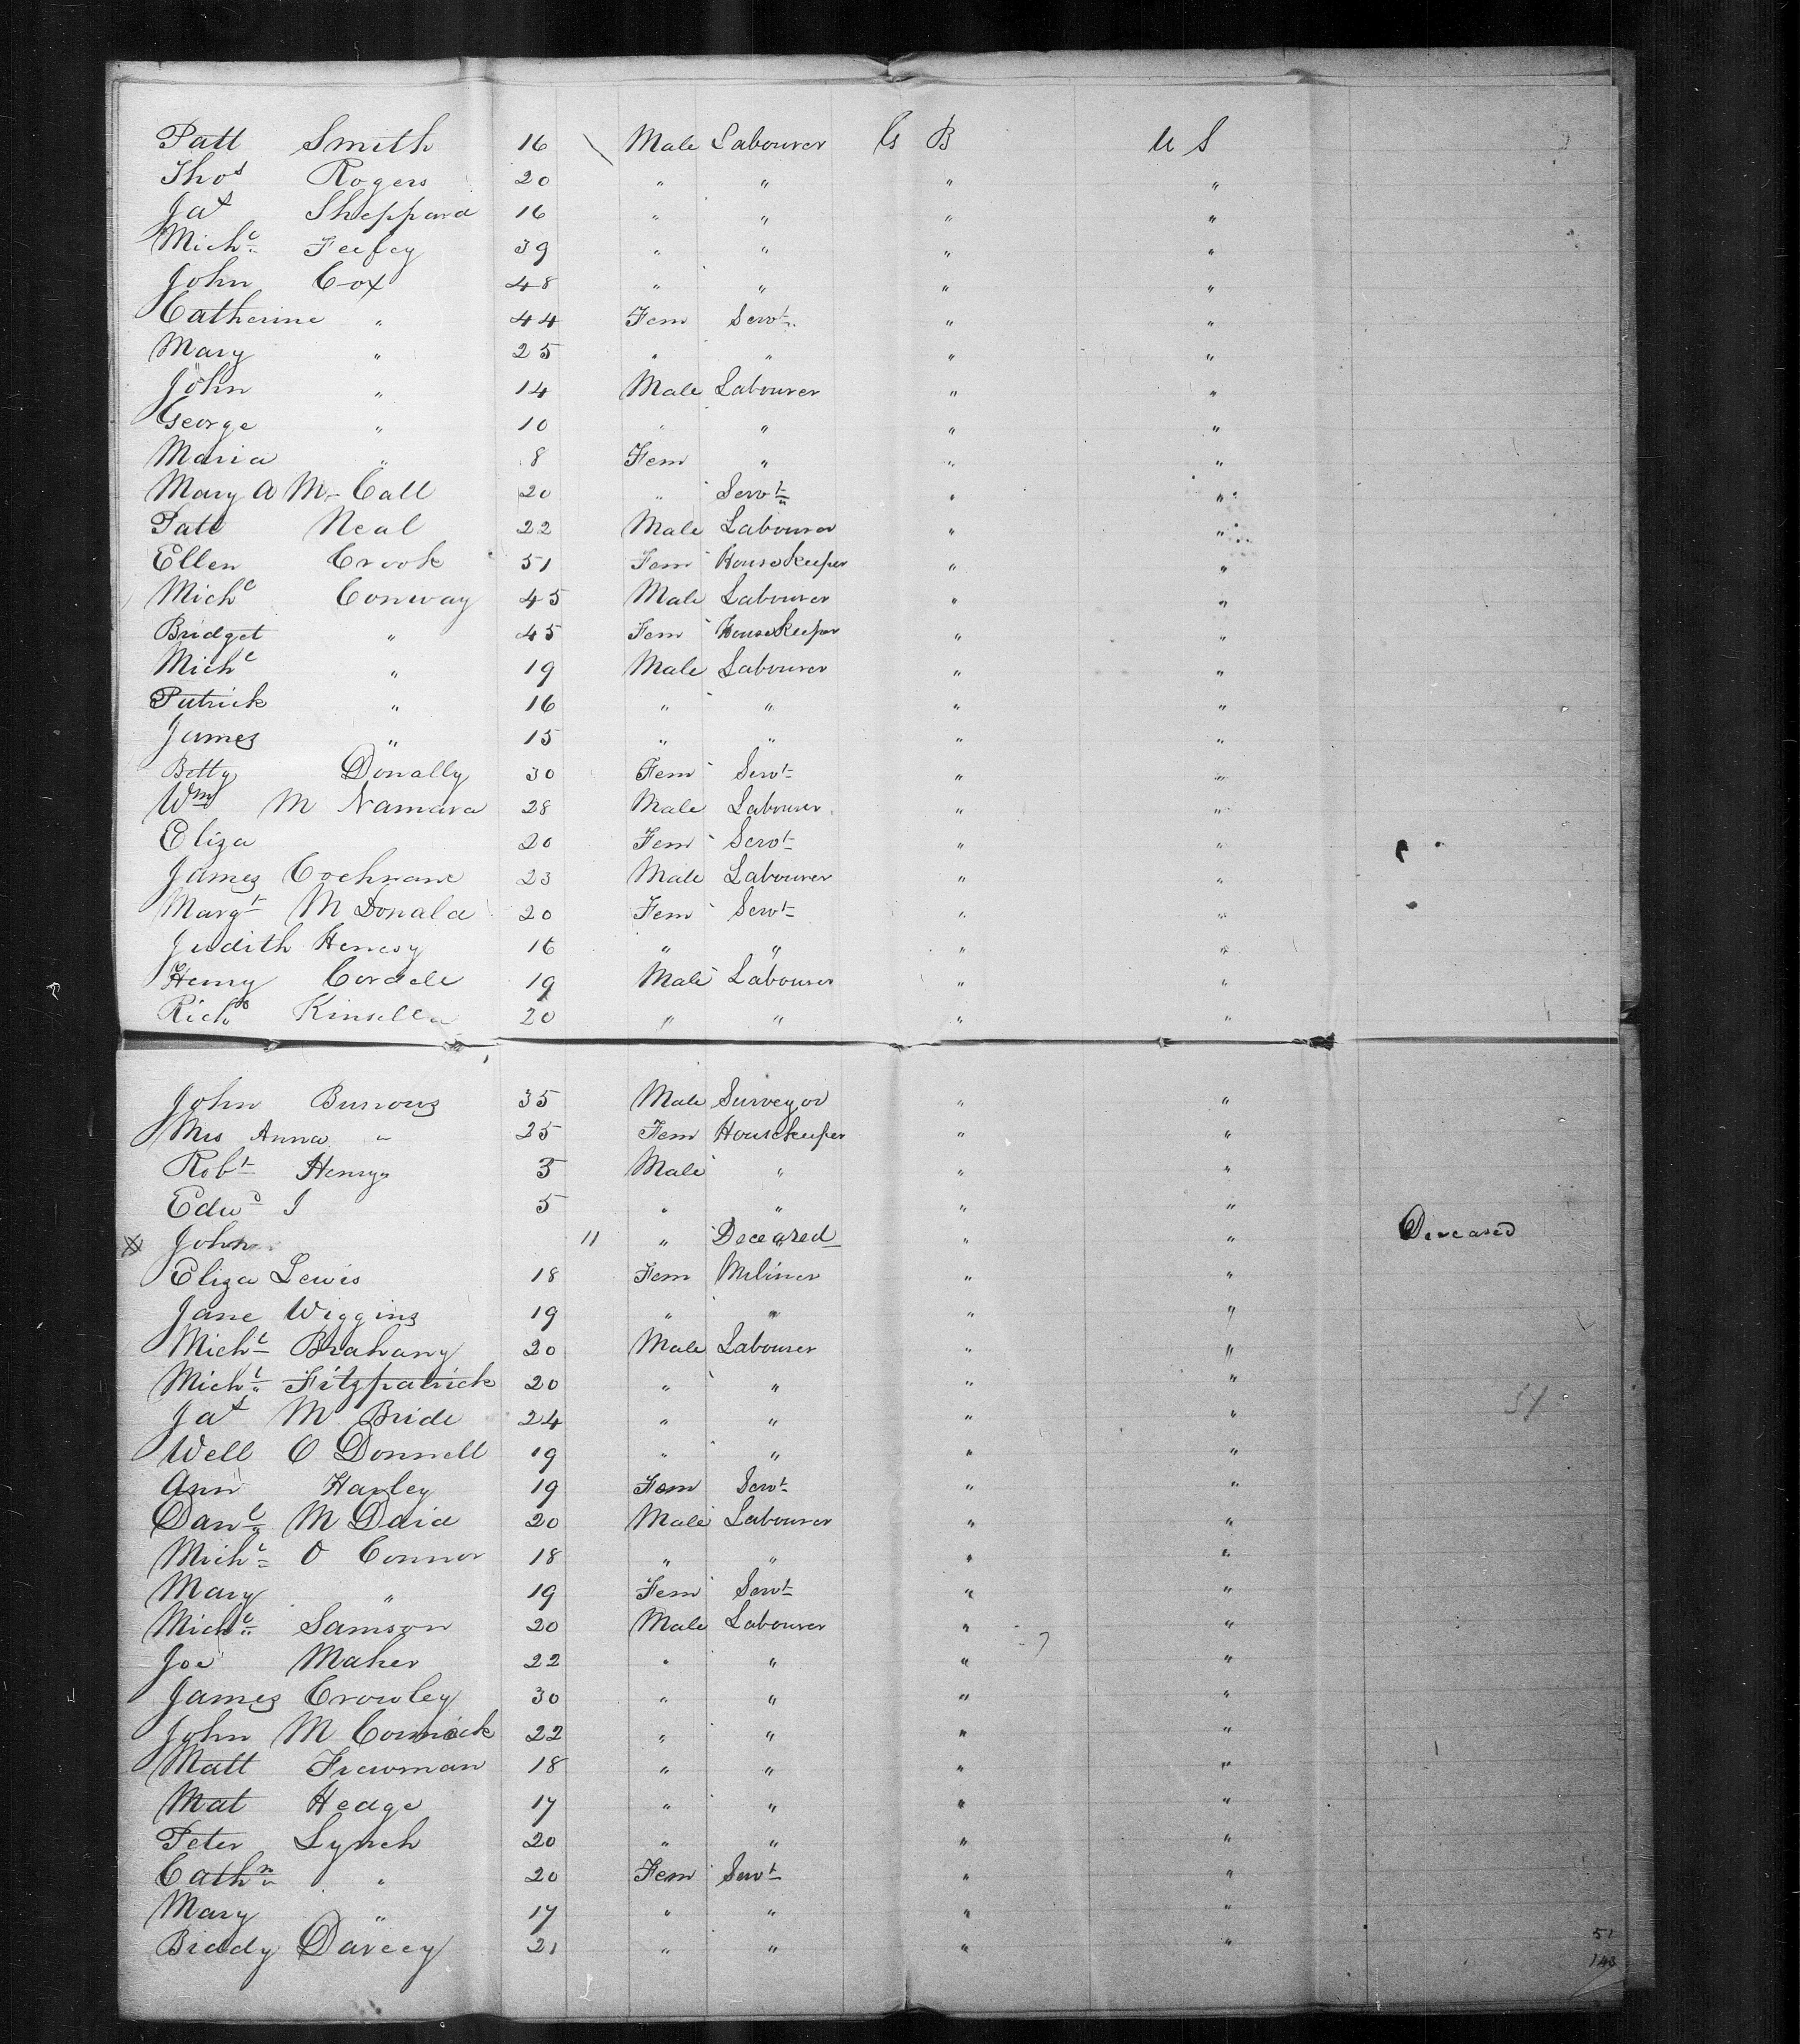 Patt Smith 16 \ Male Labourer G B U S
Thos Rogers 20 " " " "
Jas Sheppard 16 " " " "
Michl Feefey 39 " " " "
John Cox 48 " " " "
Catherine " 44 Fem Servt " "
Mary " 25 " " " "
John " 14 Male Labourer " "
George " 10 " " " "
Maria " 8 Fem " " "
Mary A Mc Call 20 " Servt " "
Patt Neal 22 Male Labourer " "
Ellen Crook 51 Fem Housekeeper " "
Michl Conway 45 Male Labourer " "
Bridget " 45 Fem Housekeeper " "
Michl " 19 Male Labourer " "
Patrick " 16 " " " "
James " 15 " " " "
Betty Donally 30 Fem Servt " "
Wm M Namara 28 Male Labourer " "
Eliza 20 Fem Servt " "
James Cochrane 23 Male Labourer " "
Margt M Donald 20 Fem Servt " "
Judith Henesy 16 " " " "
Henry Cordell 19 Male Labourer " "
Richd Kinsella 20 " " " "
John Burrows 35 Male Surveyor " "
Mrs Anna " 25 Fem Housekeeper " "
Robt Henry 3 Male " " "
Edwd J 5 " " " "
John 11 " Deceased " " Deceased
Eliza Lewis 18 Fem Miliner " "
Jane Wiggins 19 " " " "
Michl Brahany 20 Male Labourer " "
Michl Fitzpatrick 20 " " " "
Jas M Bride 24 " " " " 51
Well O Donnell 19 " " " "
Ann Harley 19 Fem Servt " "
Danl M Daid 20 Male Labourer " "
Michl O Connor 18 " " " "
Mary " 19 Fem Servt " "
Michl Samson 20 Male Labourer " "
Joe Maher 22 " " " "
James Crowley 30 " " " "
John M Cormick 22 " " " "
Matt Frewman 18 " " " "
Mat Hedge 17 " " " "
Peter Lynch 20 " " " "
Cathn " 20 Fem Servt " "
Mary " 17 " " " "
Biddy Darcey 21 " " " " 51
143